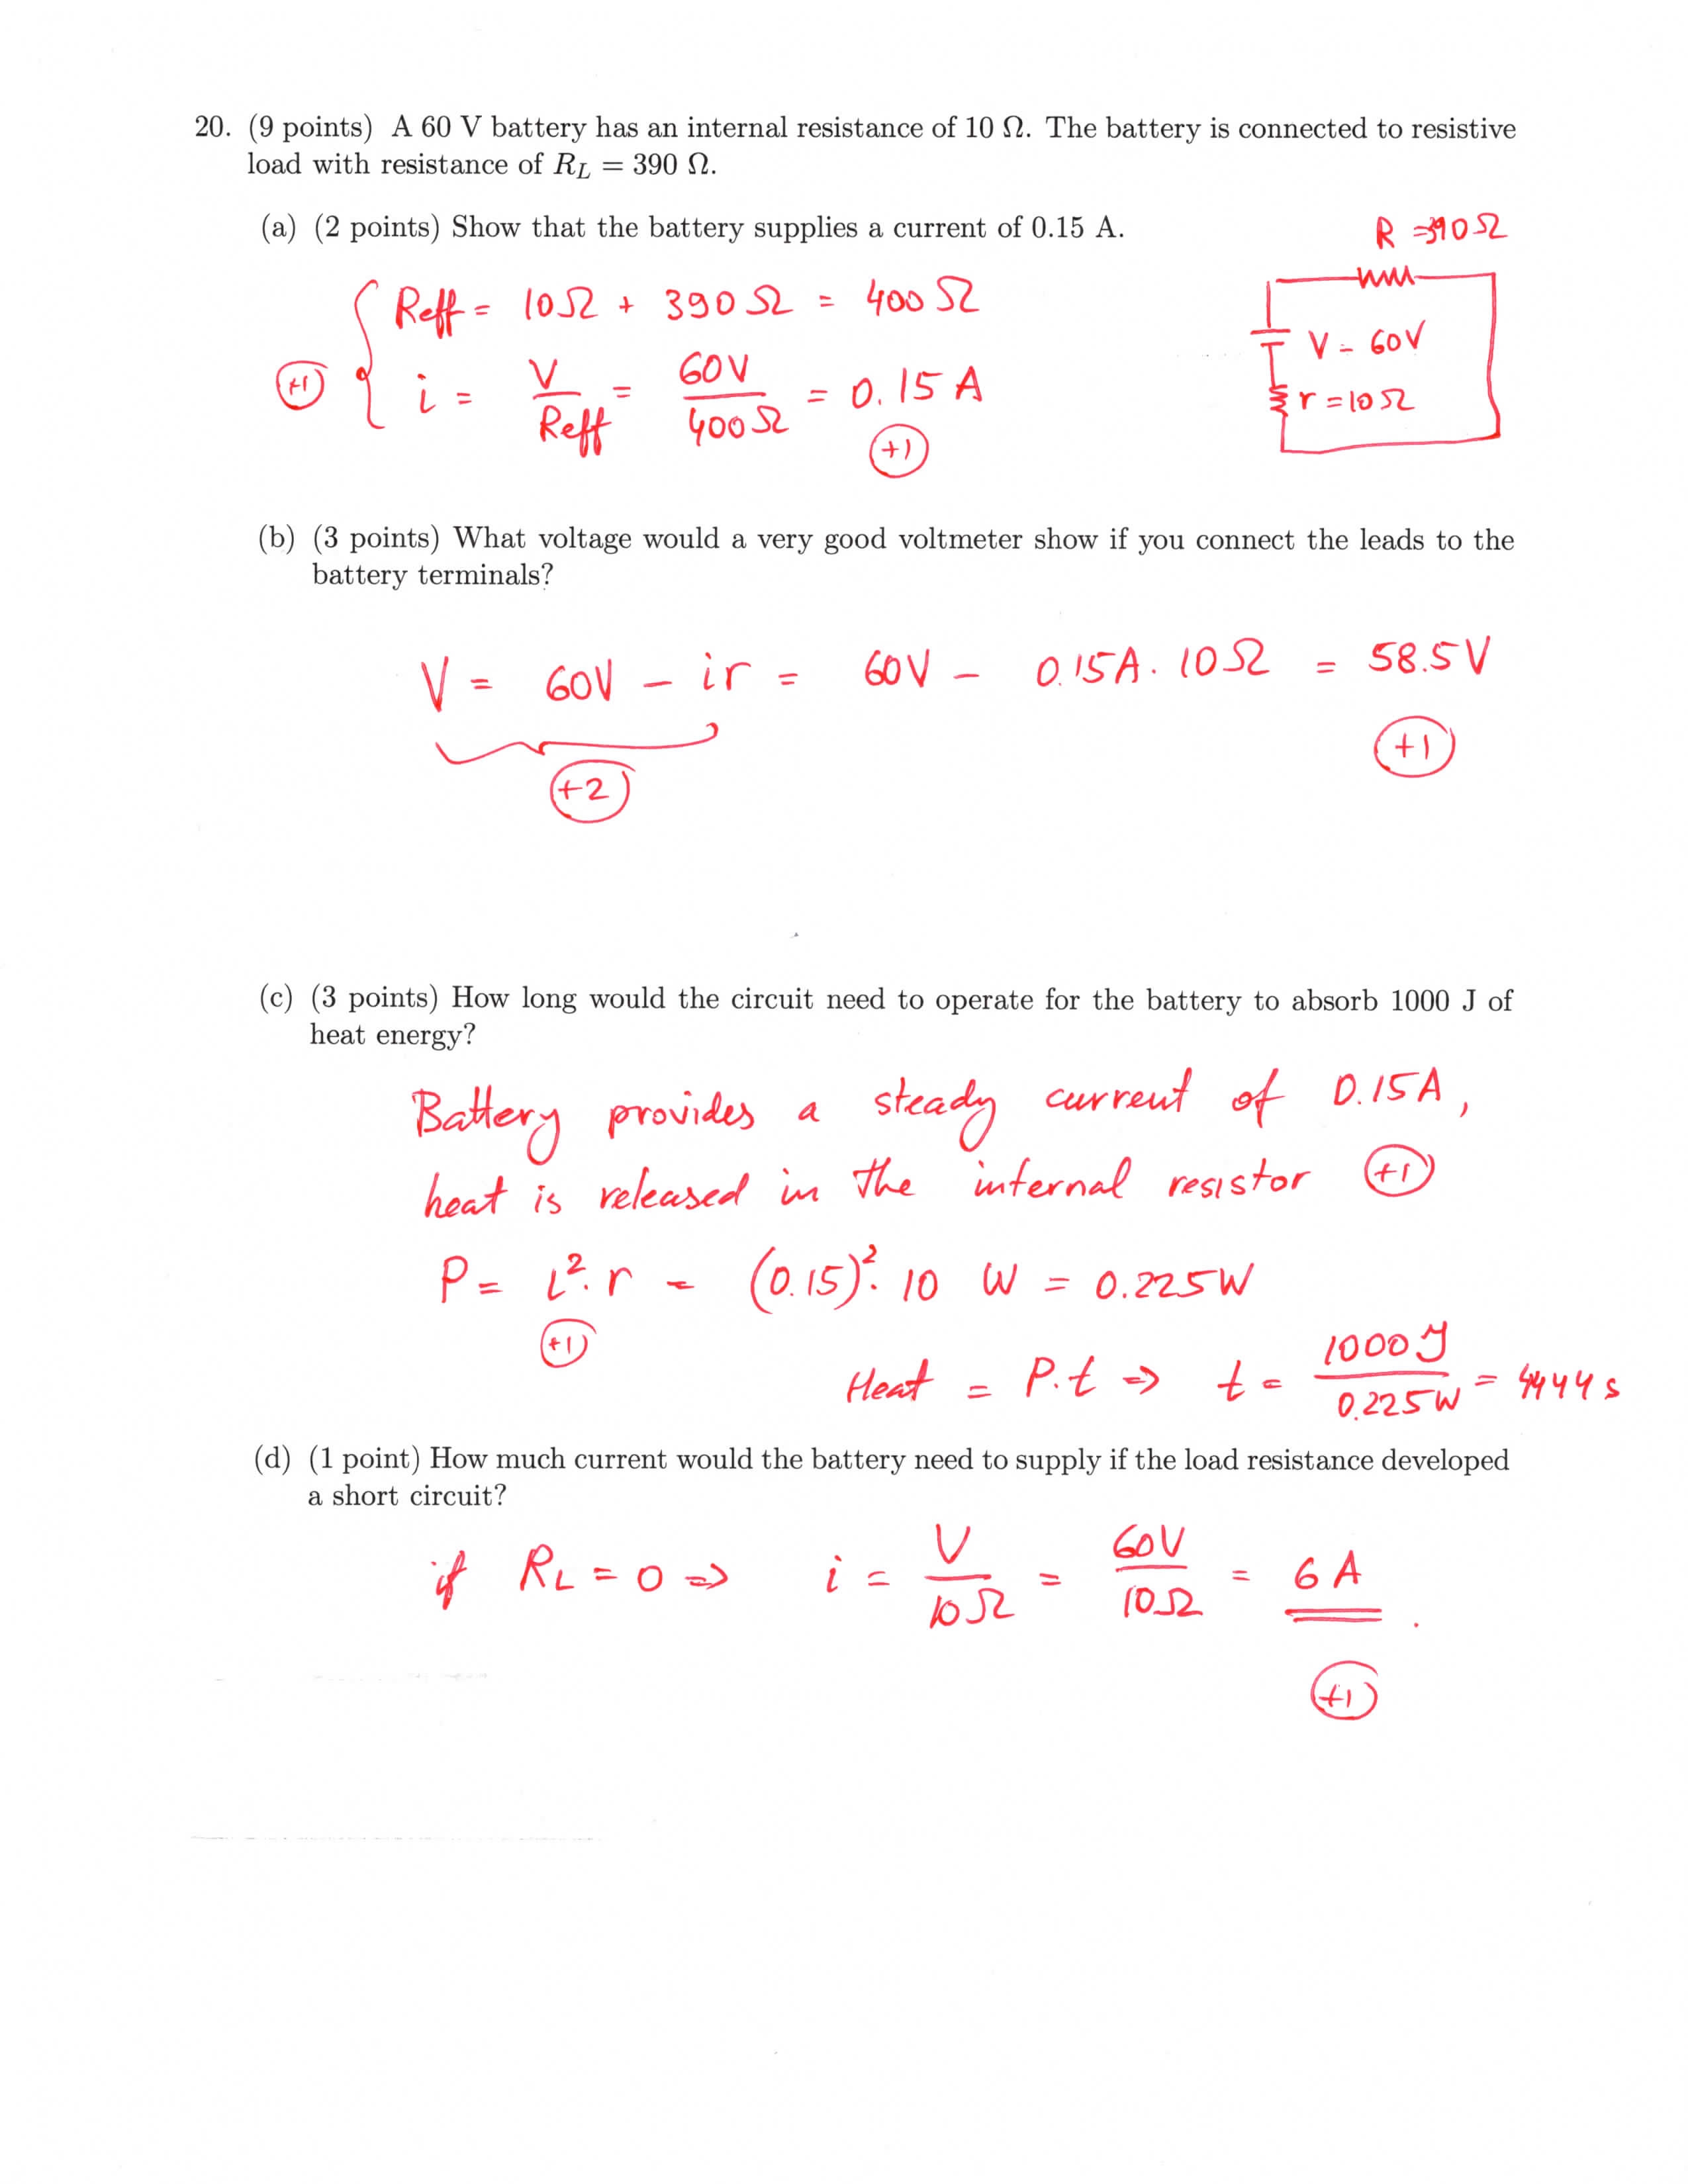 20. (9 points) A 60 V battery has an internal resistance of 10 Ω. The battery is connected to resistive
load with resistance of R_L = 390 Ω.
(a) (2 points) Show that the battery supplies a current of 0.15 A.
R = 390Ω
V = 60V
r = 10Ω
Reff = 10Ω + 390Ω = 400Ω
+1
i = V/Reff = 60V/400Ω = 0.15 A
+1
(b) (3 points) What voltage would a very good voltmeter show if you connect the leads to the
battery terminals?
V = 60V - ir = 60V - 0.15A · 10Ω = 58.5V
+1
+2
(c) (3 points) How long would the circuit need to operate for the battery to absorb 1000 J of
heat energy?
Battery provides a steady current of 0.15A,
heat is released in the internal resistor +1
P = i²·r = (0.15)²·10 W = 0.225W
+1
Heat = P.t => t = 1000J/0.225W = 4444s
(d) (1 point) How much current would the battery need to supply if the load resistance developed
a short circuit?
if RL = 0 => i = V/10Ω = 60V/10Ω = 6A.
+1